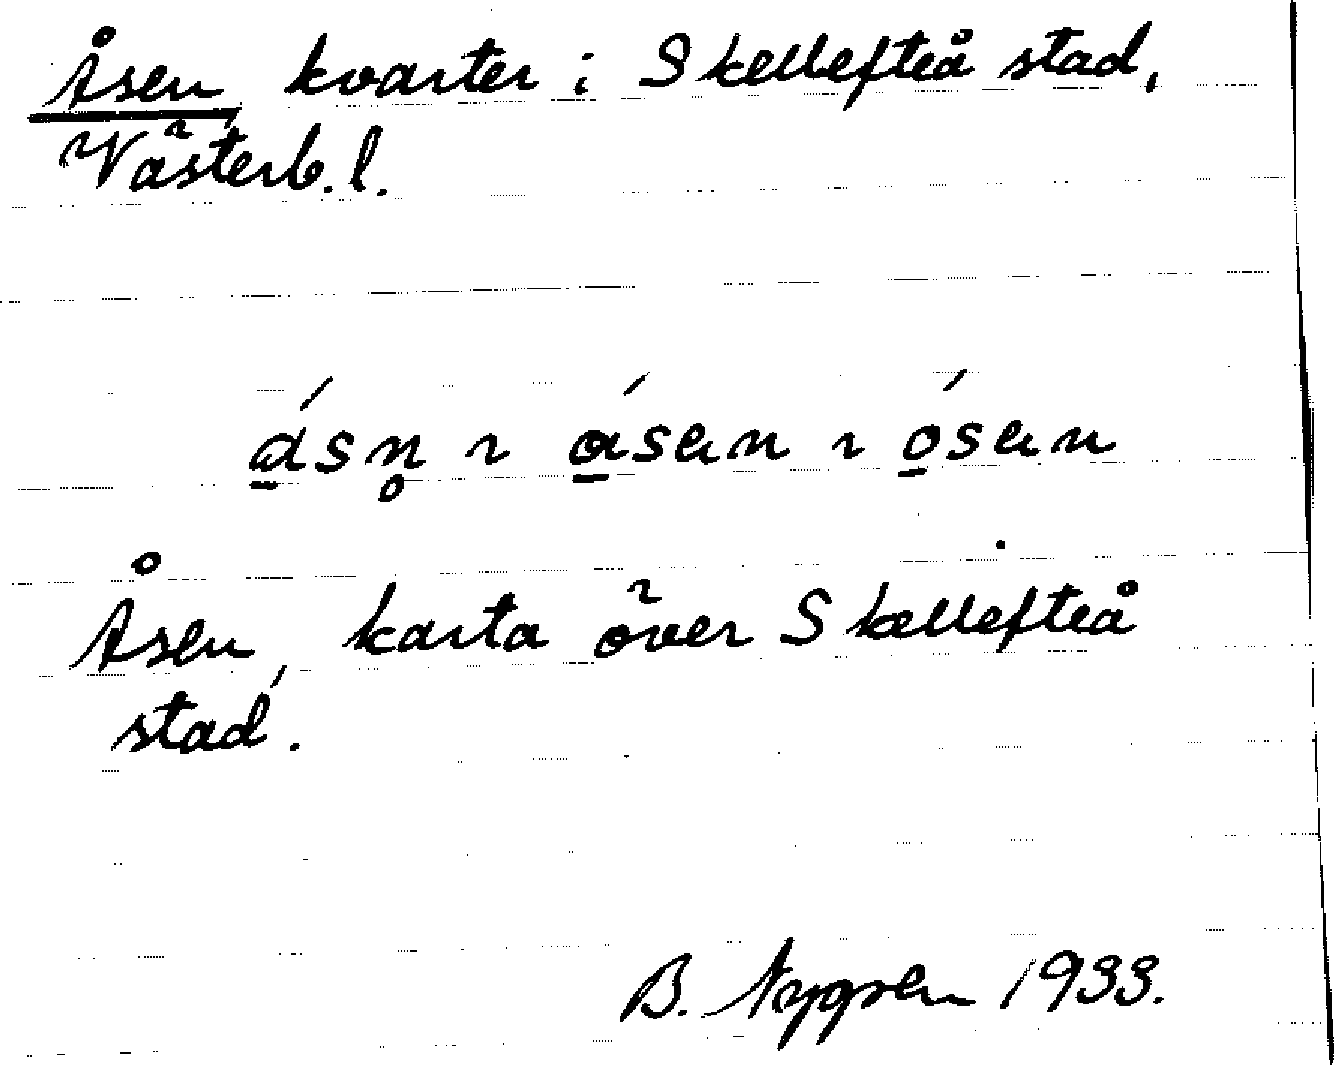 Åsen, kvarter i Skellefteå stad,
Västerb. l.
ásn̥ ~ ásen ~ ósen
Åsen, karta över Skellefteå
stad.
B. Nygren 1933.